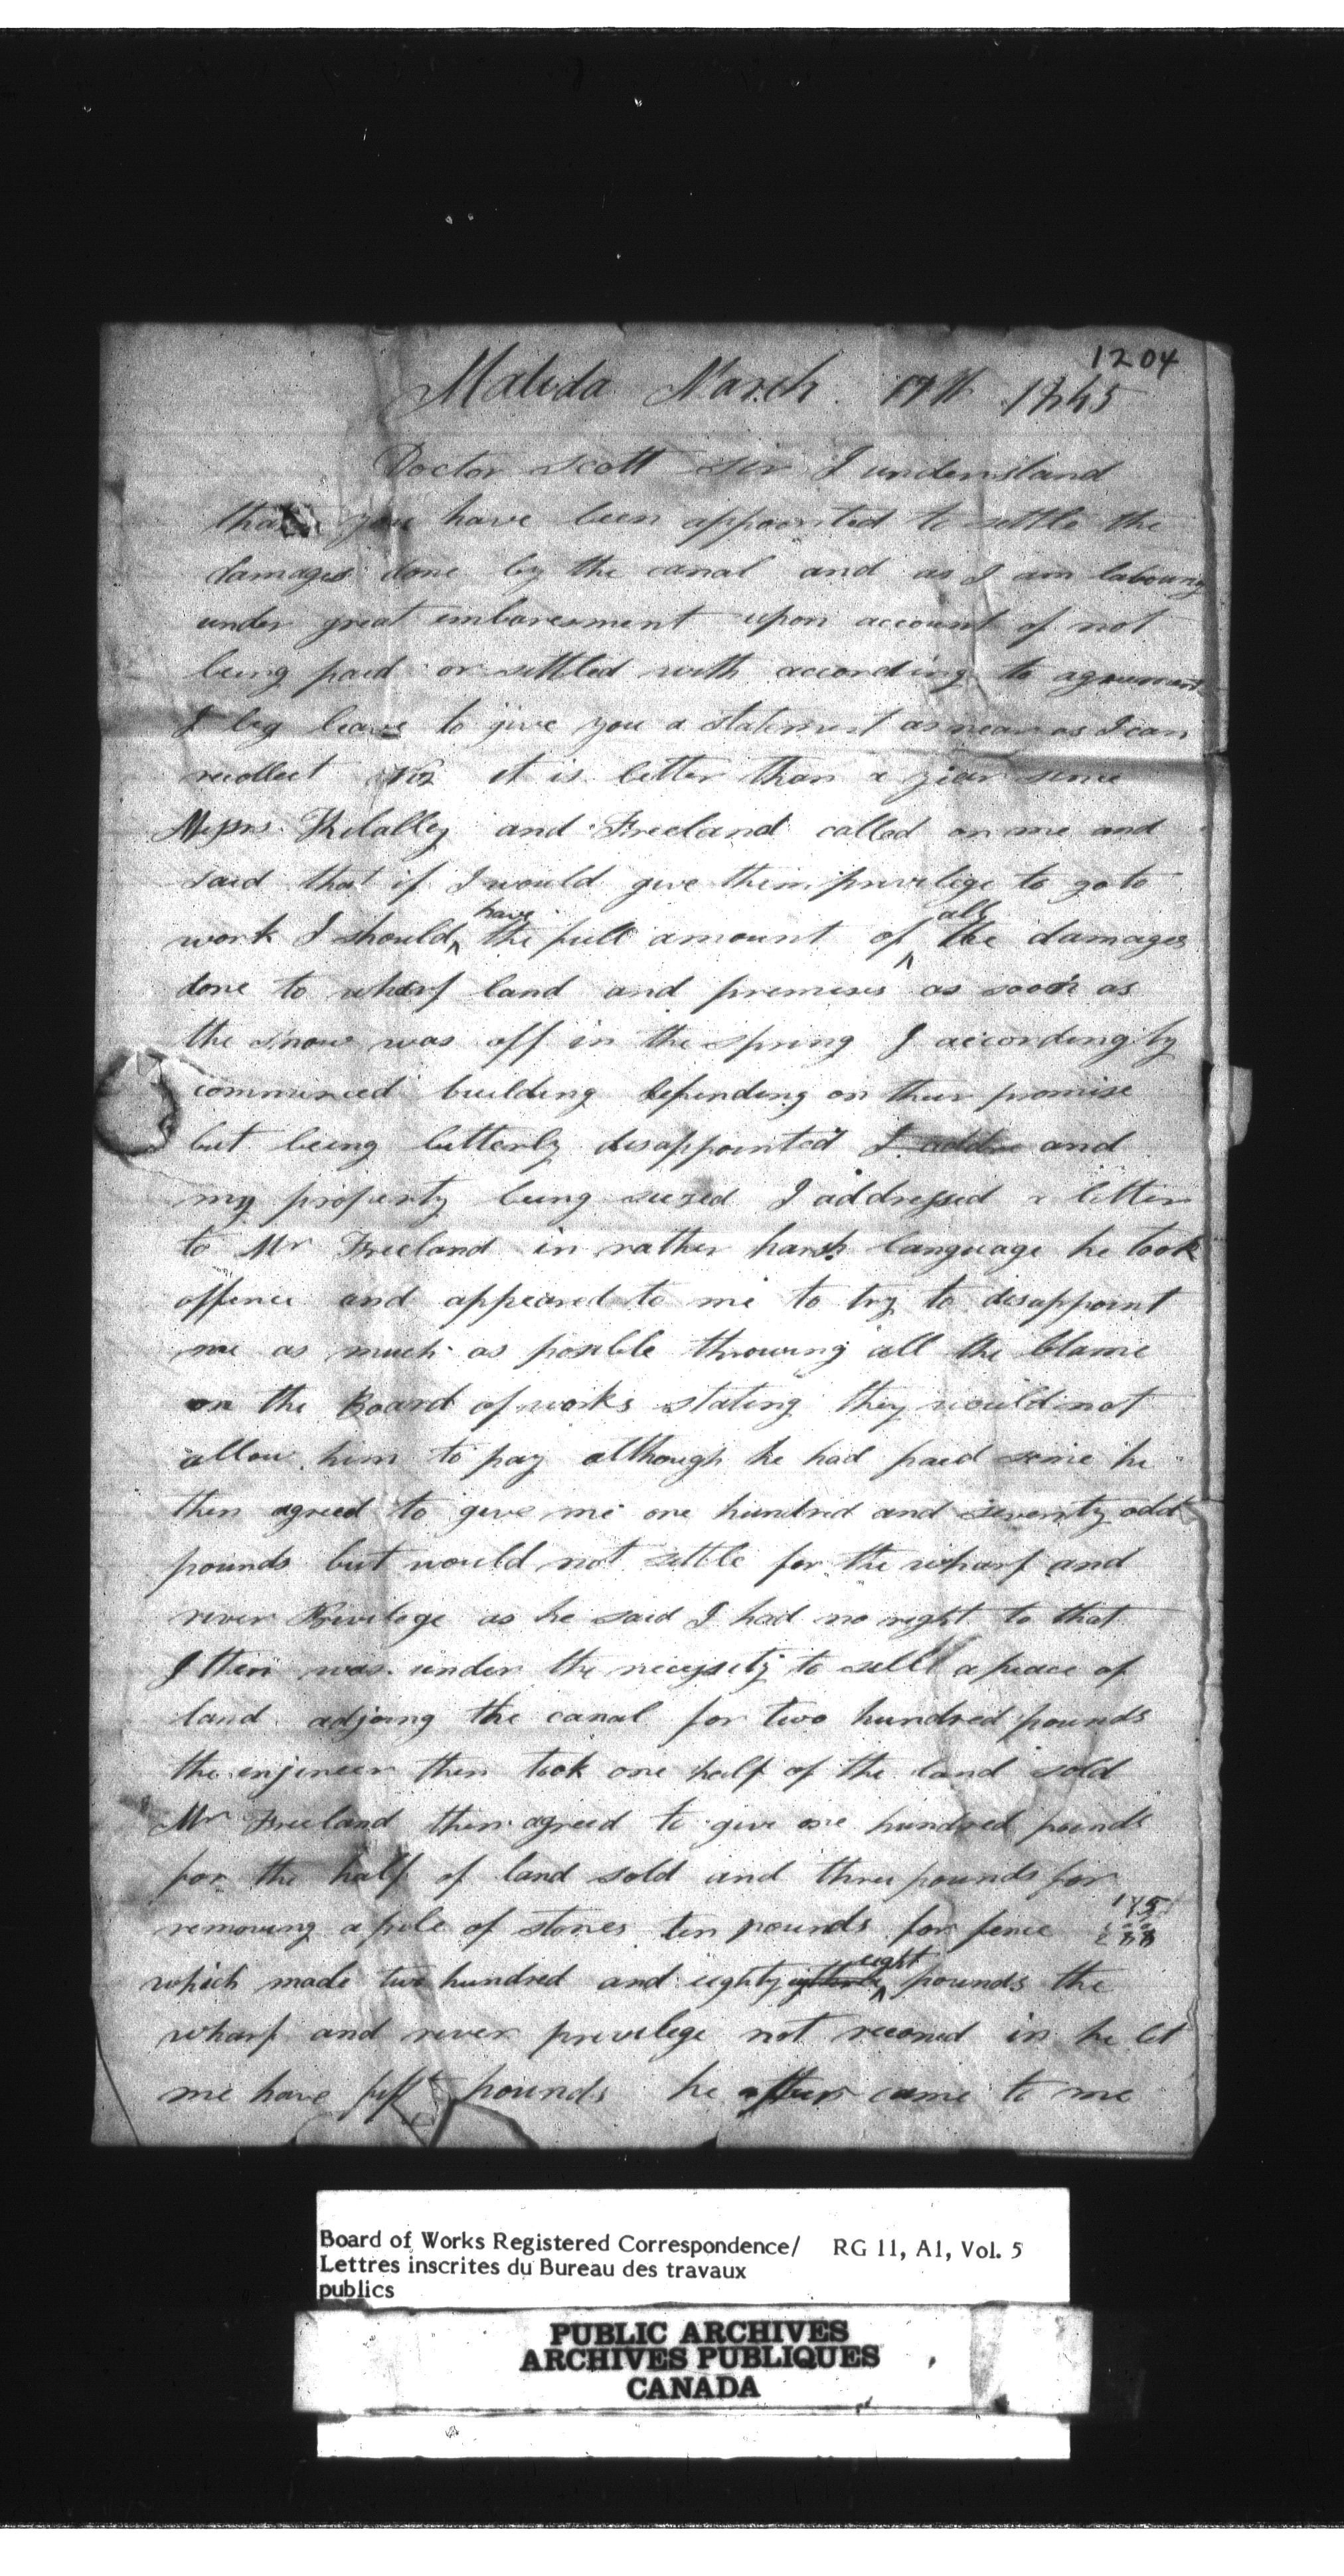 1204
Matilda March 17th 1845
Doctor Scott sir I understand
that you have been appointed to settle the
damages done by the canal and as I am labouring
under great embaresment upon account of not
being paid or settled with according to agreement
I beg leave to give you a statement as near as I can
recollect it is better than a year since
Messrs Kilally and Freeland called on me and
said that if I would give them privelige to go to
have all
work I should the full amount of the damages
done to wharf land and premises as soon as
the snow was off in the spring I accordingly
commenced building depending on their promise
but being bitterly disappointed I addre and
my property being seized I addressed a letter
to Mr Freeland in rather harsh language he took
offence and appeared to me to try to disappoint
me as much as posible throwing all the blame
on the Board of works stating they would not
allow him to pay although he had paid some he
then agreed to give me one hundred and seventy odd
pounds but would not settle for the wharf and
river Privilege as he said I had no right to that
I then was under the necessity to sell a peace of
land adjoing the canal for two hundred pounds
the enjineer then took one half of the land sold
Mr Freeland then agreed to give one hundred pounds
for the half of land sold and three pounds for
175
removing a pile of stones ten pounds for fence
eight
which made two hundred and eighty pounds the
wharf and river privelege not reconed in he let
me have pounds he after came to me
Board of Works Registered Correspondence/ RG 11, A1, Vol. 5
Lettres inscrites du Bureau des travaux
publics
PUBLIC ARCHIVES
ARCHIVES PUBLIQUES
CANADA